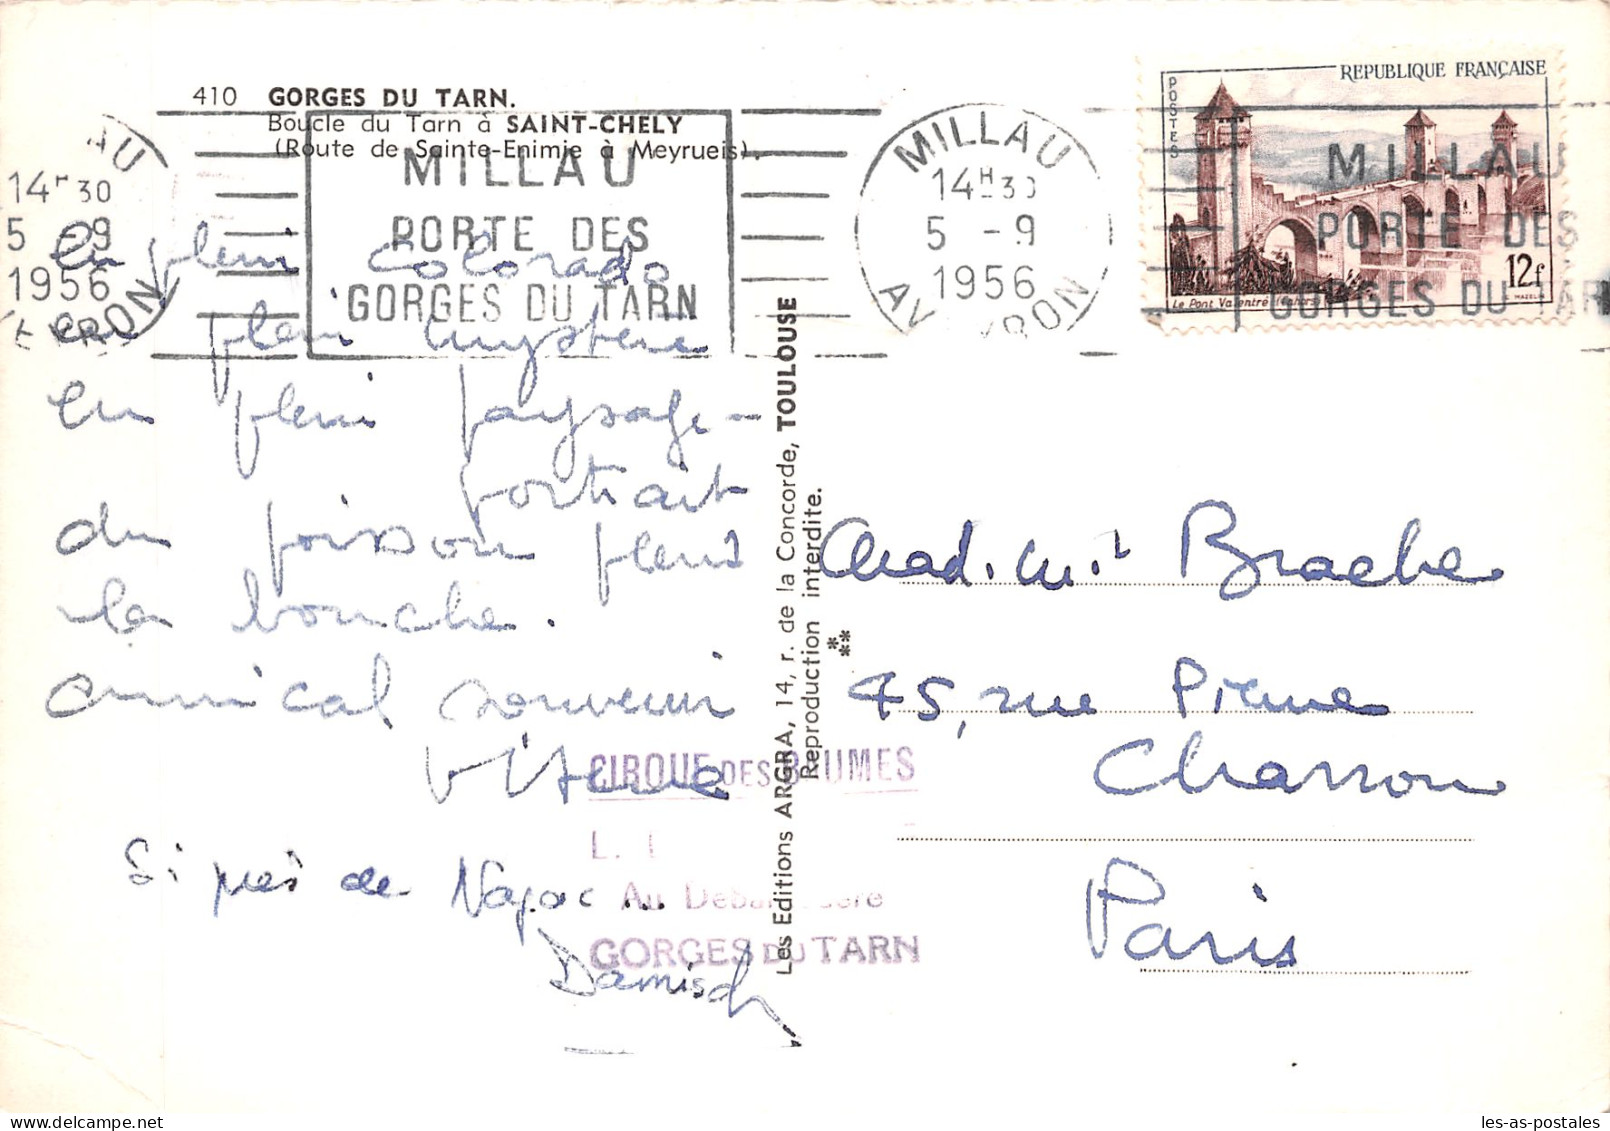 410 GORGES DU TARN.
Boucle du Tarn à SAINT-CHELY
(Route de Sainte-Enimie à Meyrueis).
AU
14H 30
5 -9
1956
AVEYRON
MILLAU
PORTE DES
GORGES DU TARN
MILLAU
14H 30
5 -9
1956
AVEYRON
REPUBLIQUE FRANÇAISE
POSTES
Le Pont Valentré (Cahors)
12f
MAZELIN
MILLAU
PORTE DES
GORGES DU TAR
En plein Colorado
en plein mystère
en plein paysage-
portrait
du poisson plein
la bouche.
amical souvenir
Si près de Najac...
Damisch
CIRQUE DES BAUMES
L.
Au Debarcadère
GORGES DU TARN
Les Editions ARGRA, 14, r. de la Concorde, TOULOUSE
Reproduction interdite.
Brache
45, rue Pierre
Charron
Paris
les-as-postales